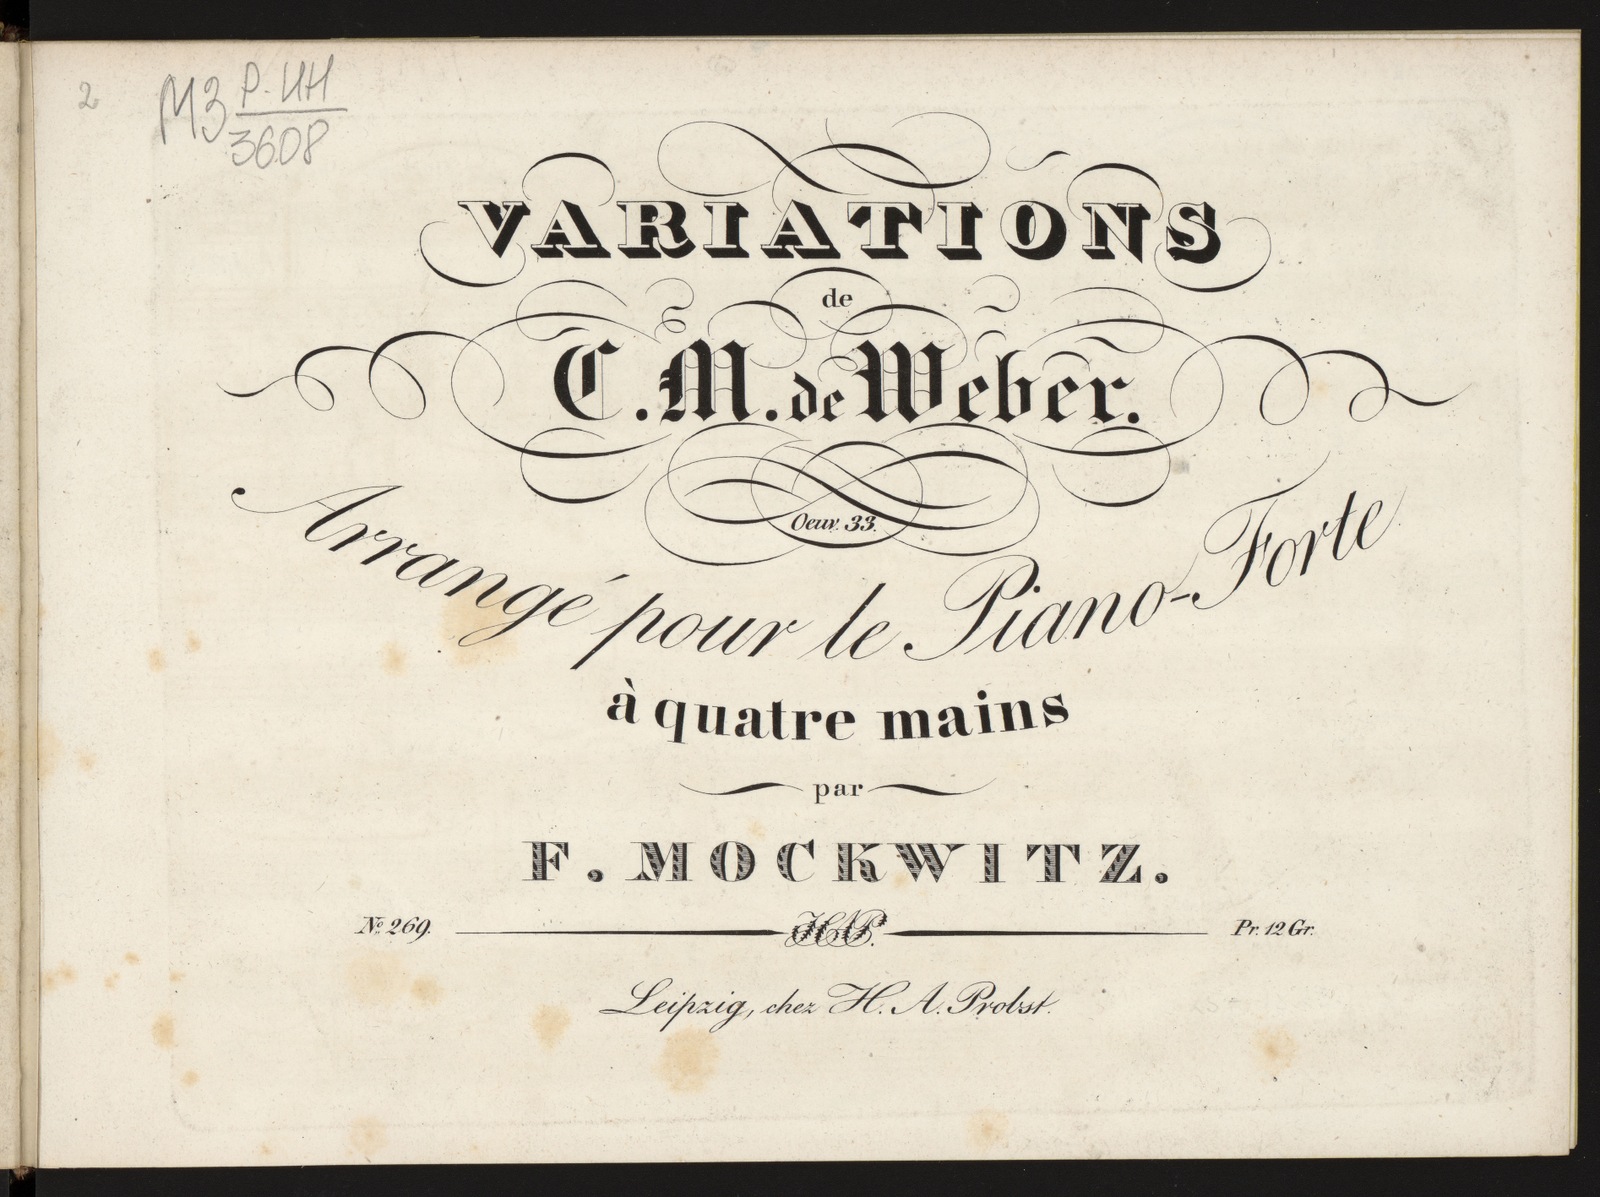 2
МЗ Р-ИН
3608
VARIATIONS
de
C. M. de Weber.
Oeuv. 33.
Arrangé pour le Piano-Forte
à quatre mains
par
F. MOCKWITZ.
No. 269. HAP. Pr. 12 Gr.
Leipzig, chez H. A. Probst.